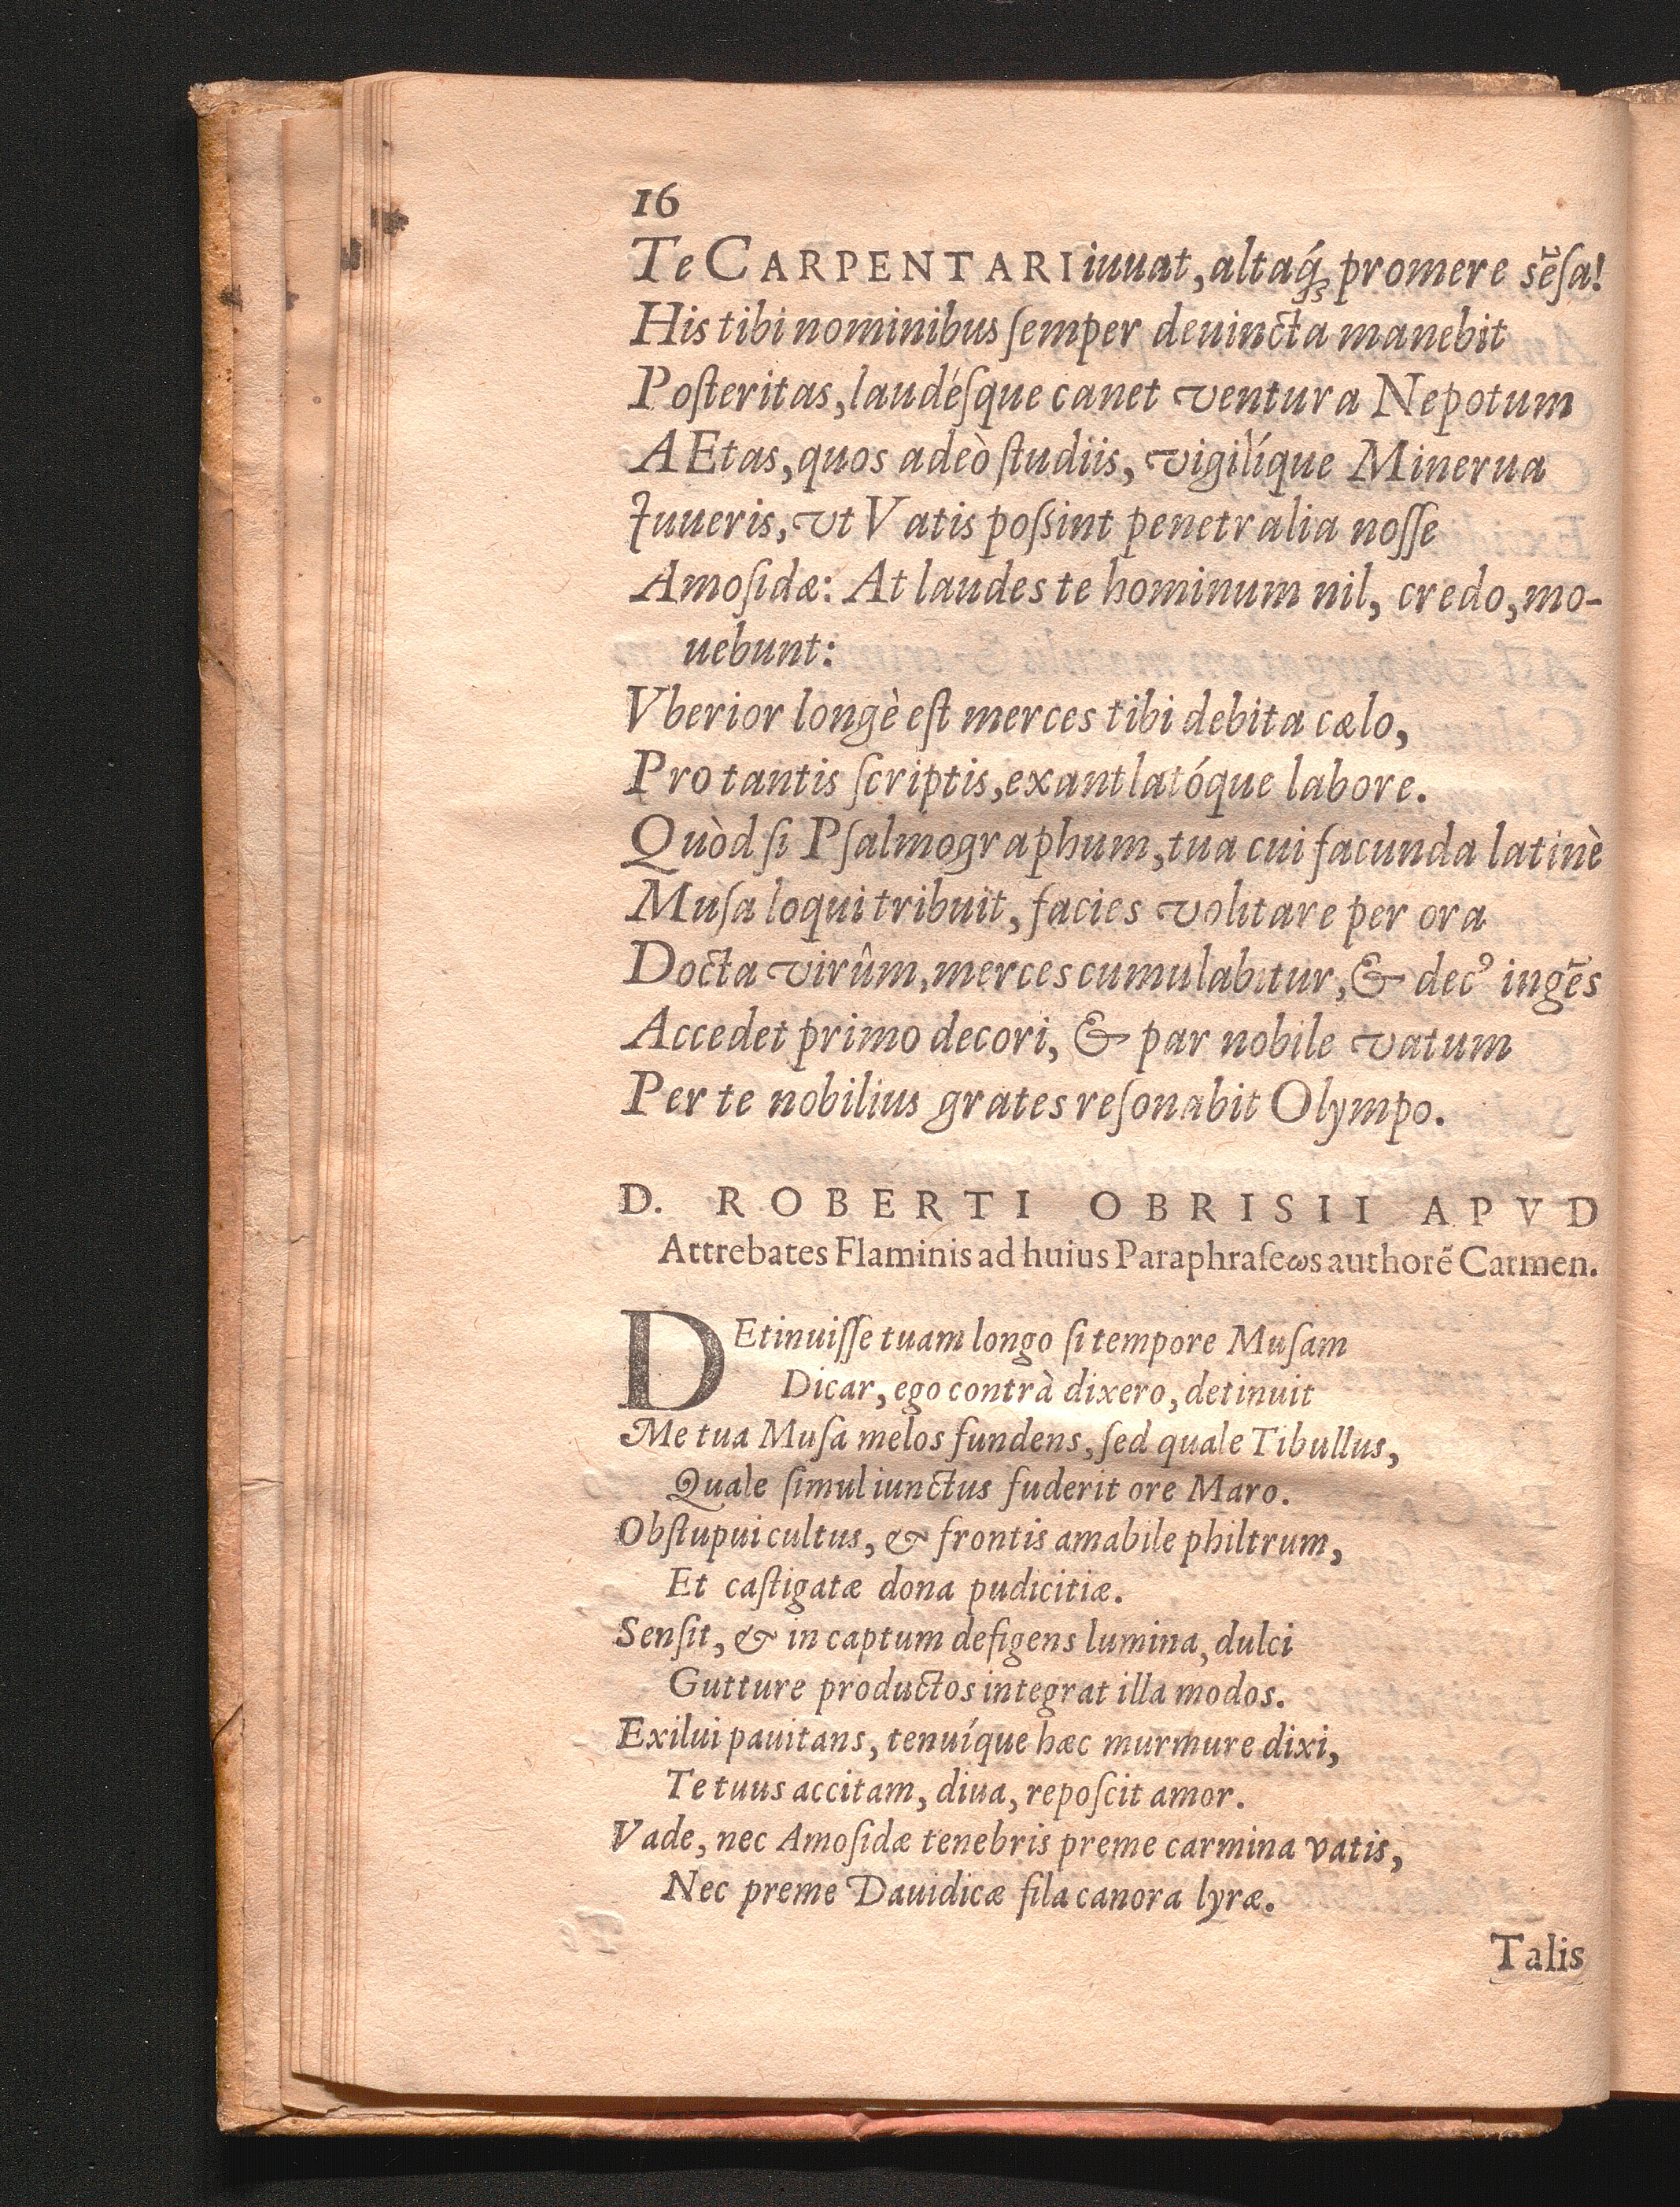 16
Te CARPENTARI iuuat, altaq́; promere sẽſa!
His tibi nominibus ſemper deuincta manebit
Poſteritas, laudéſque canet ventura Nepotum
AEtas, quos adeò ſtudiis, vigilíque Minerua
Iuueris, vt Vatis poſsint penetralia noſſe
Amoſidæ: At laudes te hominum nil, credo, mo-
uebunt:
Vberior longè eſt merces tibi debita cælo,
Pro tantis ſcriptis, exantlatóque labore.
Quòd ſi Pſalmographum, tua cui facunda latinè
Muſa loqui tribuit, facies volitare per ora
Docta virûm, merces cumulabitur, & decꝰ ingẽs
Accedet primo decori, & par nobile vatum
Per te nobilius grates reſonabit Olympo.
D. ROBERTI OBRISII APVD
Attrebates Flaminis ad huius Paraphraſeωs authorẽ Carmen.
DEtinuiſſe tuam longo ſi tempore Muſam
Dicar, ego contrà dixero, detinuit
Me tua Muſa melos fundens, ſed quale Tibullus,
Quale ſimul iunctus fuderit ore Maro.
Obſtupui cultus, & frontis amabile philtrum,
Et caſtigatæ dona pudicitiæ.
Senſit, & in captum defigens lumina, dulci
Gutture productos integrat illa modos.
Exilui pauitans, tenuíque hæc murmure dixi,
Te tuus accitam, diua, repoſcit amor.
Vade, nec Amoſidæ tenebris preme carmina vatis,
Nec preme Dauidicæ fila canora lyræ.
Talis